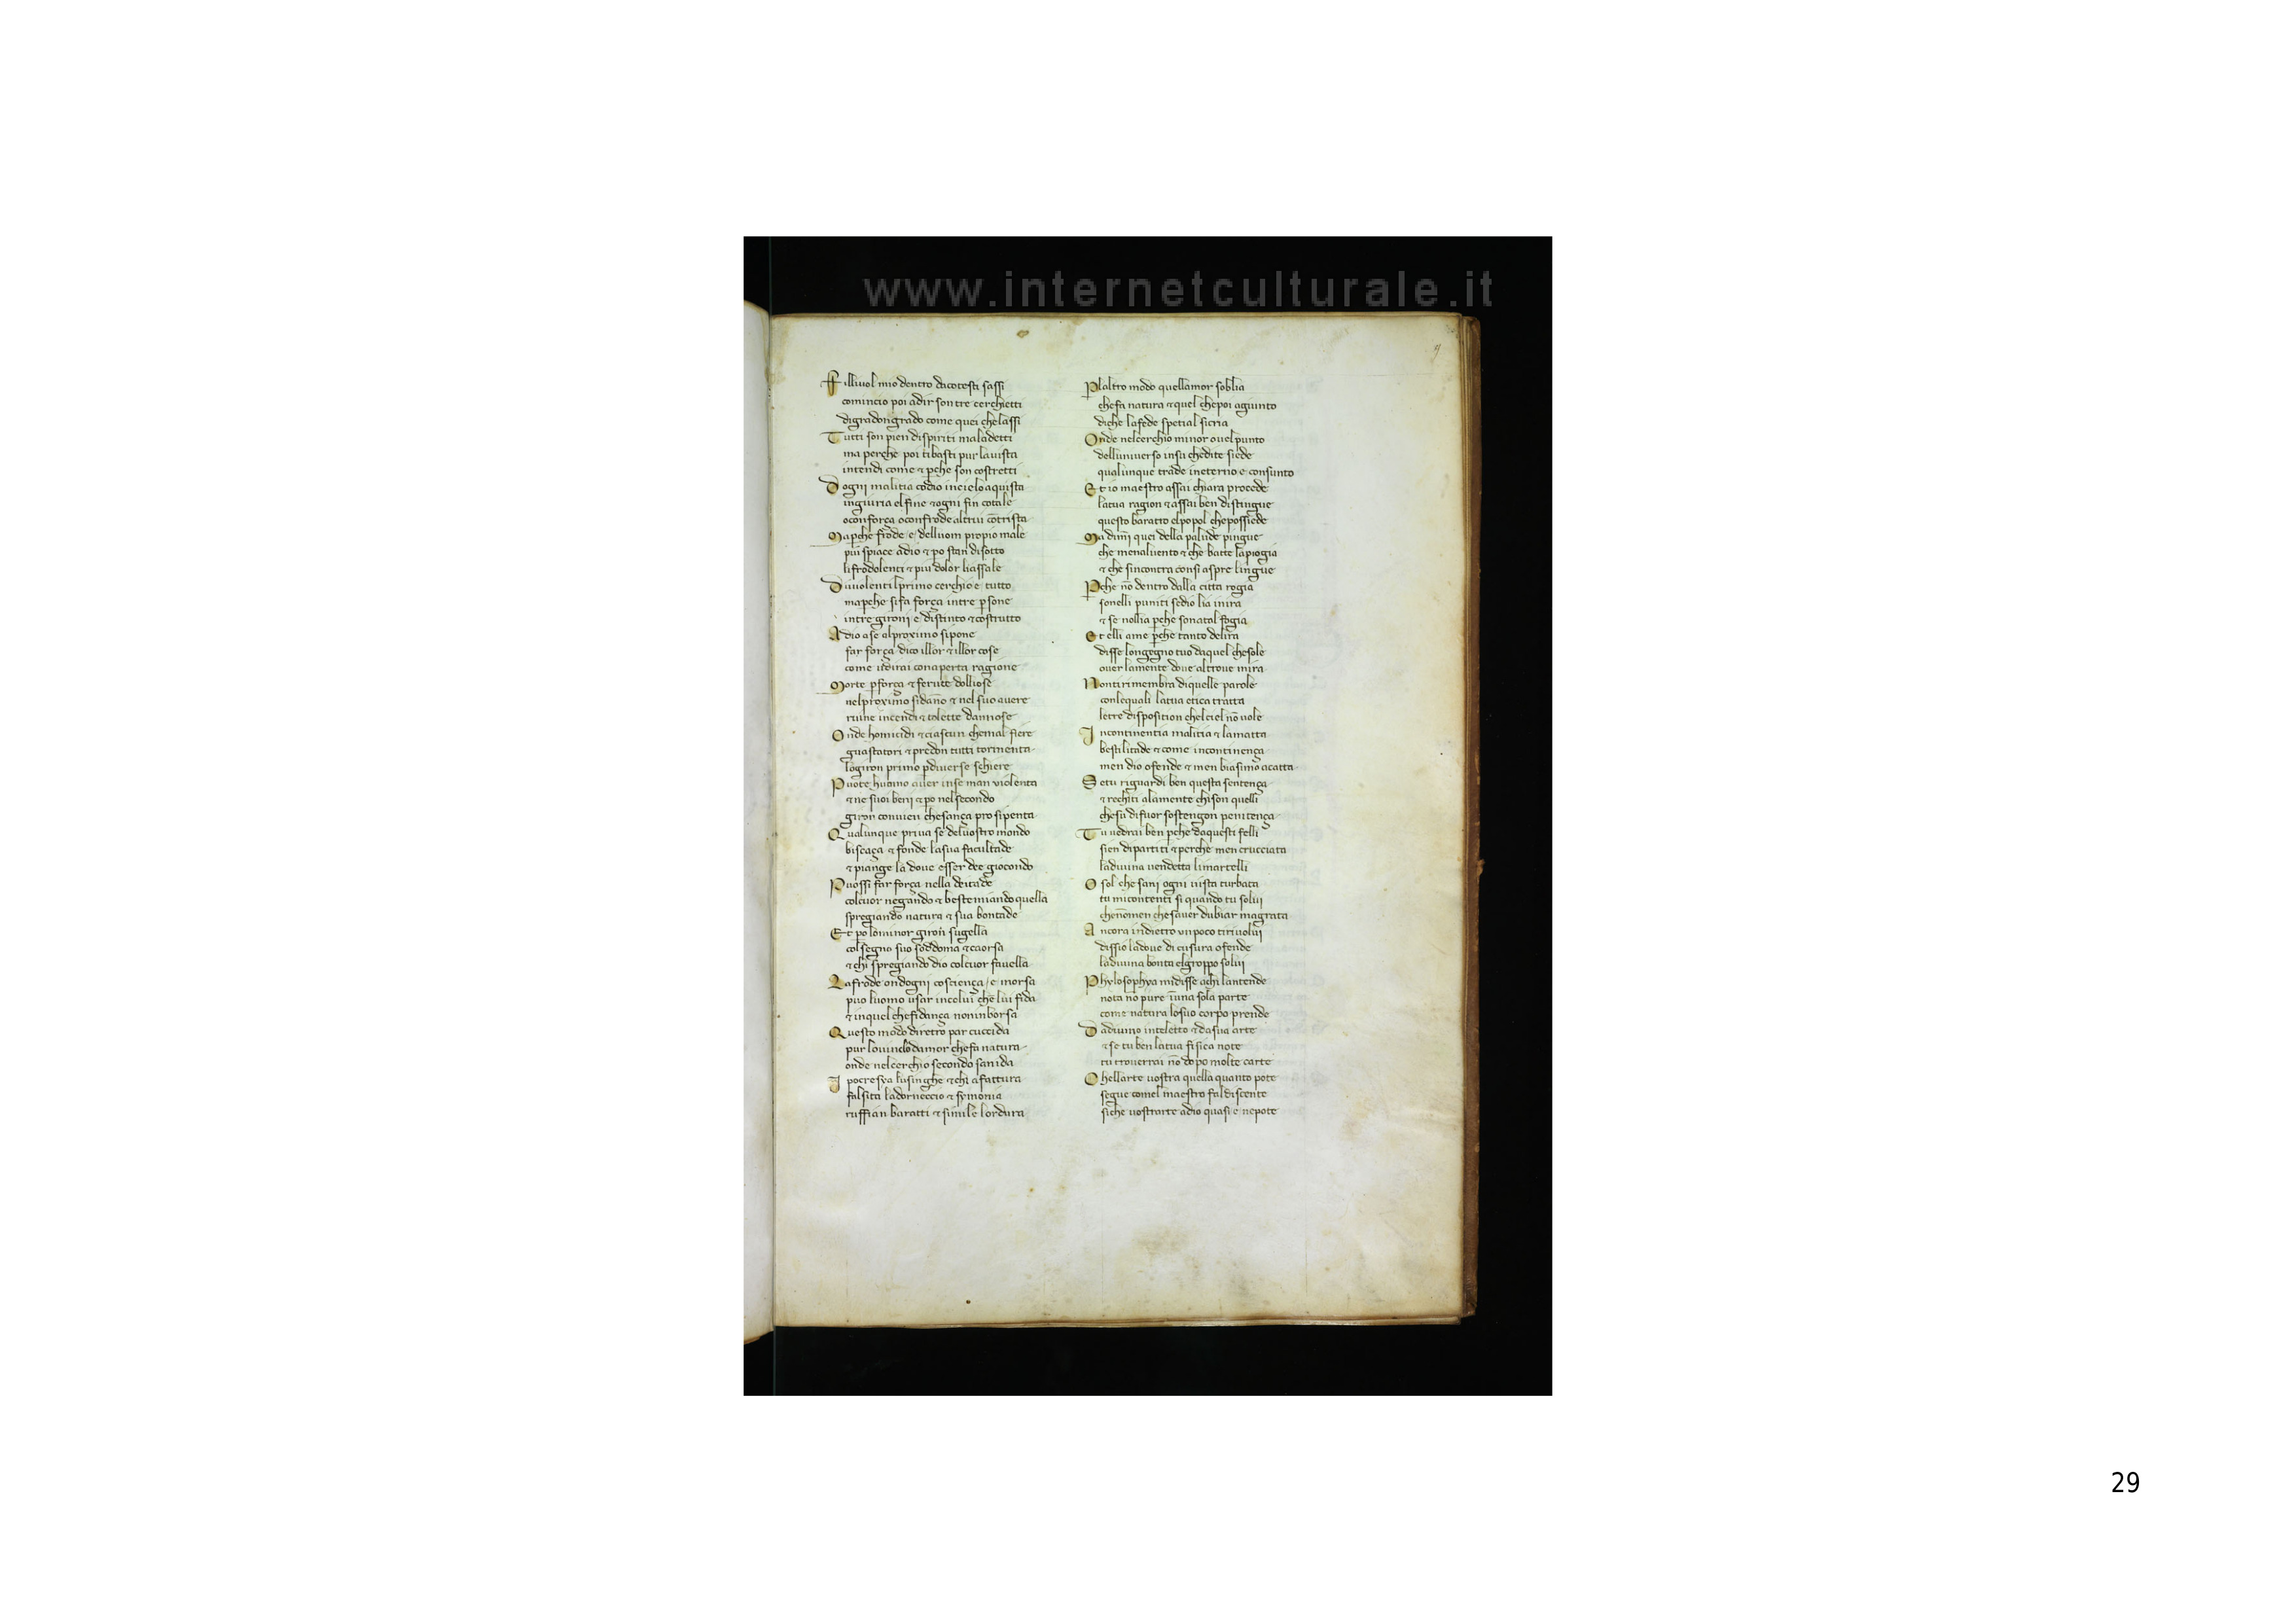 www.internetculturale.it
9
Filliuol mio dentro dacotesti sassi
comincio poi adir son tre cerchietti
digradongrado come quei chelassi
Tutti son pien dispiriti maladetti
ma perche poi tibasti pur lauista
intendi come ⁊ ꝑche son costretti
Dogni malitia codio incielo aquista
ingiuria el fine ⁊ogni fin cotale
oconforça oconfrode altrui cōtrista
Maꝑche frode e delluom propio male
piu spiace adio ⁊ ꝑo stan disotto
lifrodolenti ⁊ piu dolor liassale
Diuiolenti lprimo cerchio e tutto
maꝑche sifa força intre ꝑsone
intre gironi e distinto ⁊ costrutto
Adio ase alproximo sipone
far força dico illor ⁊ illor cose
come udirai conaperta ragione
Morte ꝑforça ⁊ ferute dolliose
nelproximo sidāno ⁊ nel suo auere
ruine incendi ⁊ tolette dannose
Onde homicidi ⁊ ciascun chemal fiere
guastatori ⁊ predon tutti tormenta
logiron primo ꝑdiuerse schiere
Puote huomo auer inse man uiolenta
⁊ ne suoi beni ⁊ ꝑo nel secondo
giron conuien chesança pro sipenta
Qualunque priua se deluostro mondo
biscaça ⁊ fonde lasua facultade
⁊ piange la doue esser dee giocondo
Puossi far força nella deitade
colcuor negando ⁊ bestemiando quella
spregiando natura ⁊ sua bontade
Et ꝑo lominor giron sugella
col segno suo soddoma ⁊ caorsa
⁊ chi spregiando dio colcuor fauella
Lafrode ondogni cosciença e morsa
puo luomo usar incolui che lui fida
⁊ inquel chefidança noninborsa
Questo modo diretro par cuccida
pur louinclo damor chefa natura
onde nelcerchio secondo sanida
Ipocresya lusinghe ⁊ chi afattura
falsita ladorneccio ⁊ symonia
ruffian baratti ⁊ simile lordura
Ꝑlaltro modo quellamor soblia
chefa natura ⁊ quel chepoi agiunto
diche lafede spetial sicria
Onde nelcerchio minor ouel punto
delluniuerso insu chedite siede
qualunque trade ineterno e consunto
Et io maestro assai chiara procede
latua ragion ⁊ assai ben distingue
questo baratro elpopol chepossiede
Ma dimi quei della palude pingue
che menaluento ⁊ che batte lapiogia
⁊ che sincontra consi aspre lingue
Ꝑche nō dentro dalla citta rogia
sonelli puniti sedio lia inira
⁊ se nollia ꝑche sonatal fogia
Et elli ame ꝑche tanto delira
disse longegno tuo daquel chesole
ouer lamente doue altroue mira
Nontirimembra diquelle parole
conlequali latua etica tratta
letre disposition chelciel nō uole
Incontinentia malitia ⁊ lamatta
bestilitade ⁊ come incontinença
men dio ofende ⁊ men biasimo acatta
Setu riguardi ben questa sentença
⁊ rechiti alamente chison quelli
chesu difuor sostengon penitença
Tu uedrai ben ꝑche daquesti felli
sien dipartiti ⁊ perche men crucciata
ladiuina uendetta limartelli
O sol che sani ogni uista turbata
tu micontenti si quando tu solui
chenōmen chesauer dubiar magrata
Ancora indietro unpoco tiriuolui
dissio ladoue di cusura ofende
ladiuina bonta elgroppo solui
Phylosophya midisse achi lantende
nota no pure ī una sola parte
come natura losuo corpo prende
Dadiuino inteletto ⁊ dasua arte
⁊ se tu ben latua fisica note
tu trouerrai nō dopo molte carte
Chellarte uostra quella quanto pote
segue comel maestro fa ldiscente
siche uostrarte adio quasi e nepote
29